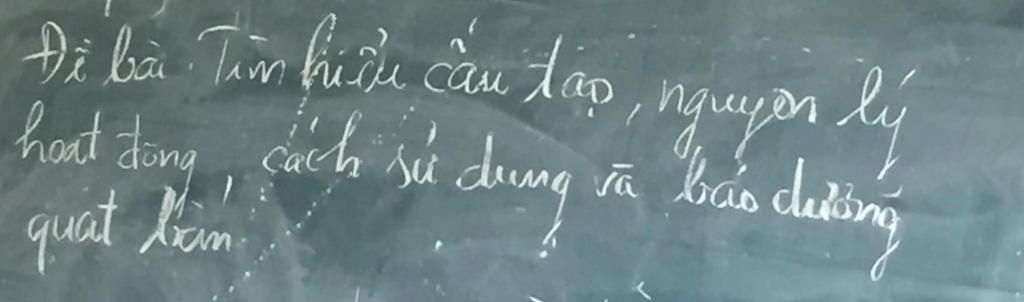 Đề bài. Tìm hiểu cấu tạo, nguyên lý
hoạt động, cách sử dụng và bảo dưỡng
quạt bàn.